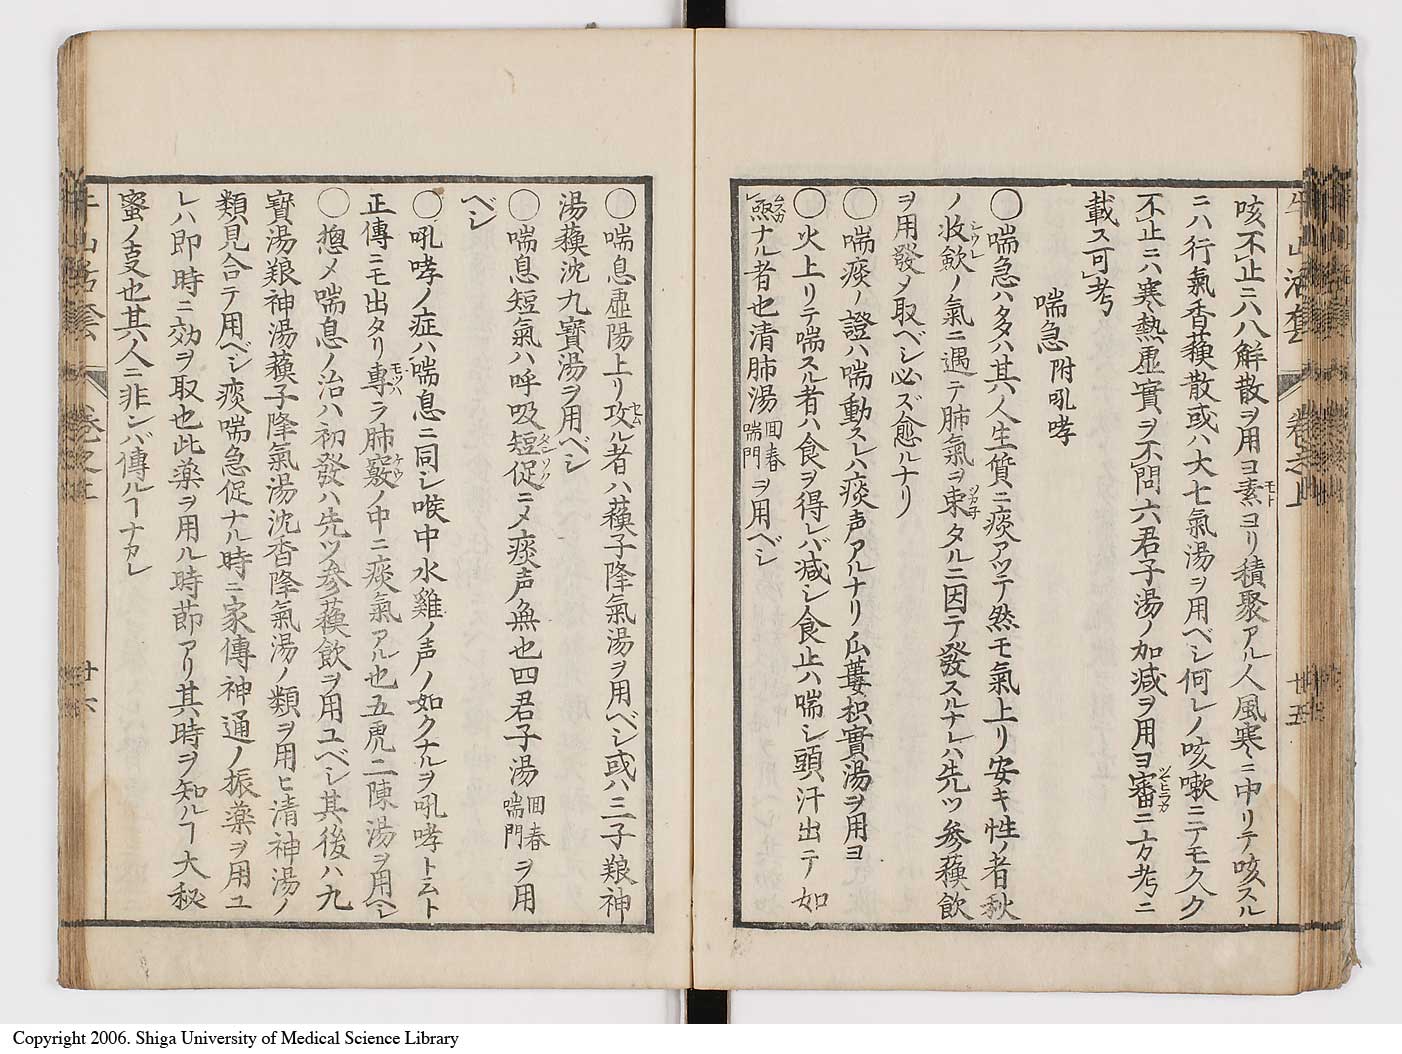 咳不止ニハ八解散ヲ用ヨ素ヨリ積聚アル人風寒ニ中リテ咳スル
ニハ行氣香蘓散或ハ大七氣湯ヲ用ベシ何レノ咳嗽ニテモ久ク
不止ニハ寒熱虚實ヲ不問六君子湯ノ加減ヲ用ヨ審ニ方考ニ
載ス可考
喘急附吼哮
〇喘急ハ多ハ其人生質ニ痰アツテ然モ氣上リ安キ性ノ者秋
ノ收歛ノ氣ニ遇テ肺氣ヲ束タルニ因テ發スルナレハ先ツ参蘓飲
ヲ用發メ取ベシ必ズ愈ルナリ
〇喘痰ノ證ハ喘動スレハ痰声アルナリ瓜蔞枳實湯ヲ用ヨ
〇火上リテ喘スル者ハ食ヲ得レバ减シ食止ハ喘シ頭汗出テ如
レ烝ナル者也清肺湯回春喘門ヲ用ベシ
牛山活套 卷之上 廿五
〇喘息虚陽上リ攻ル者ハ蘓子降氣湯ヲ用ベシ或ハ三子粮神
湯蘓沈九寳湯ヲ用ベシ
〇喘息短氣ハ呼吸短促ニメ痰声無也四君子湯回春喘門ヲ用
ベシ
〇吼哮ノ症ハ喘息ニ同シ喉中水雞ノ声ノ如クナルヲ吼哮ト云ト
正傳ニモ出タリ專ラ肺竅ノ中ニ痰氣アル也五虎二陳湯ヲ用ベシ
〇摠メ喘息ノ治ハ初發ハ先ツ参蘓飲ヲ用ユベシ其後ハ九
寳湯粮神湯蘓子降氣湯沈香降氣湯ノ類ヲ用ヒ清神湯ノ
類見合テ用ベシ痰喘急促ナル時ニ家傳神通ノ振薬ヲ用ユ
レハ即時ニ効ヲ取也此薬ヲ用ル時節アリ其時ヲ知ルヿ大秘
蜜ノ支也其人ニ非ンバ傳ルヿナカレ
牛山活套 卷之上 廿六
Copyright 2006. Shiga University of Medical Science Library